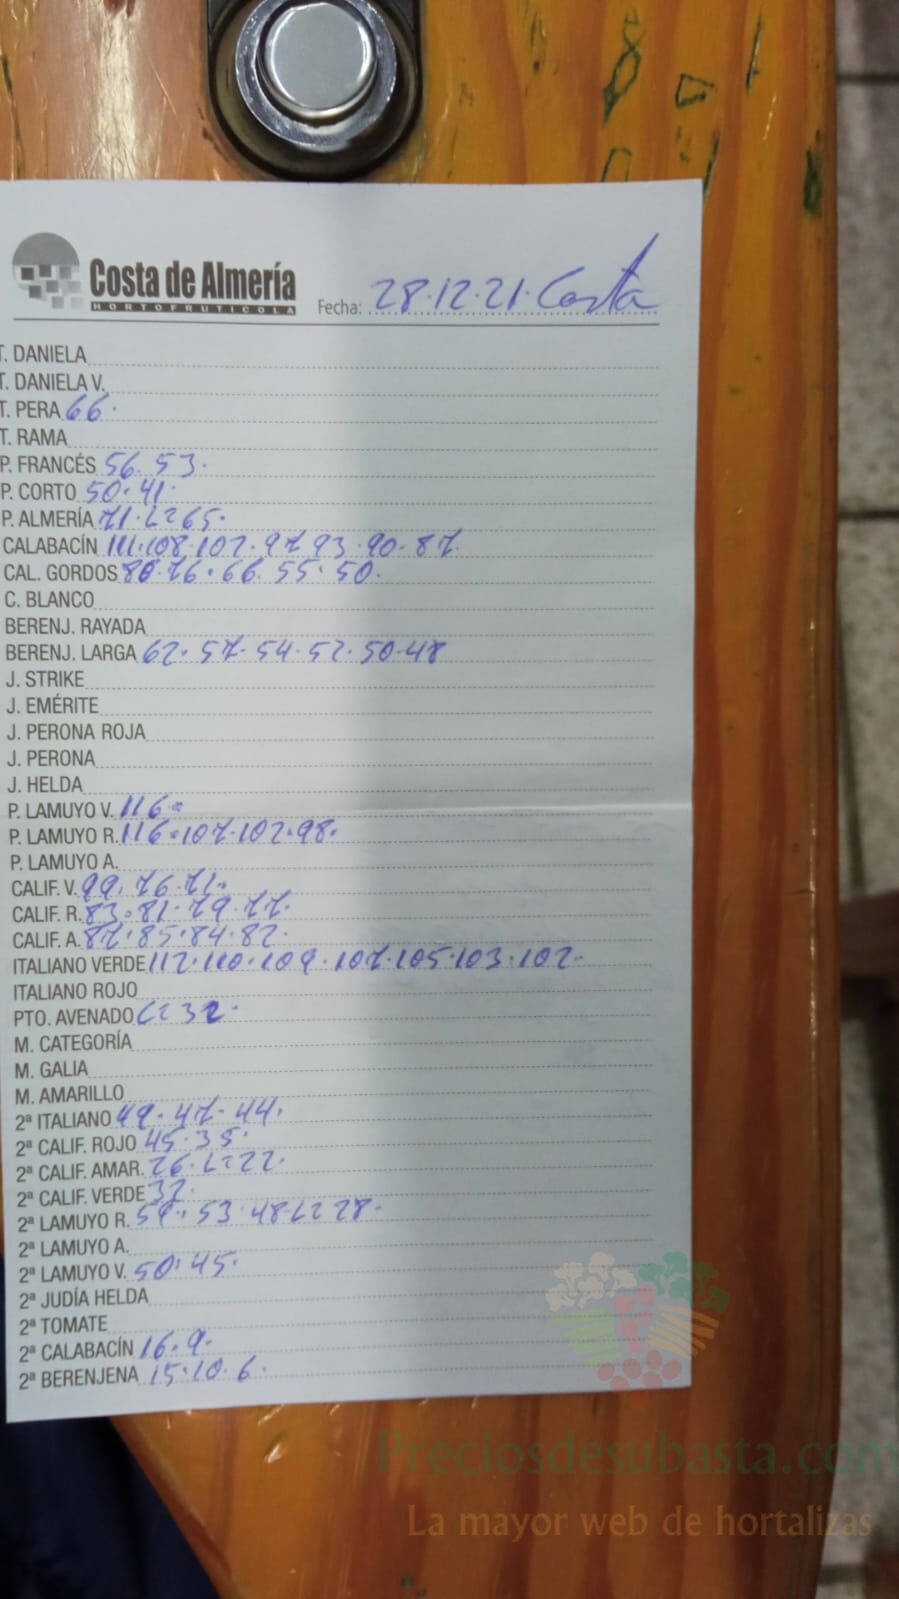 Costa de Almería
HORTOFRUTICOLA
Fecha: 28.12.21. Costa
T. DANIELA
T. DANIELA V.
T. PERA 66.
T. RAMA
P. FRANCÉS 56. 53.
P. CORTO 50. 41.
P. ALMERÍA 71. L= 65.
CALABACÍN 111. 108. 102. 97 93. 90. 87.
CAL. GORDOS 80. 76. 66. 55. 50.
C. BLANCO
BERENJ. RAYADA
BERENJ. LARGA 62. 57. 54. 52. 50. 48
J. STRIKE
J. EMÉRITE
J. PERONA ROJA
J. PERONA
J. HELDA
P. LAMUYO V. 116.
P. LAMUYO R. 116. 107. 102. 98.
P. LAMUYO A.
CALIF. V. 99. 76. 72.
CALIF. R. 83. 81. 79. 77.
CALIF. A. 87. 85. 84. 82.
ITALIANO VERDE 112. 110. 109. 107. 105. 103. 102.
ITALIANO ROJO
PTO. AVENADO L= 32.
M. CATEGORÍA
M. GALIA
M. AMARILLO
2ª ITALIANO 49. 47. 44.
2ª CALIF. ROJO 45. 35.
2ª CALIF. AMAR. 26. L= 22.
2ª CALIF. VERDE 32.
2ª LAMUYO R. 59. 53. 48. L= 28.
2ª LAMUYO A.
2ª LAMUYO V. 50. 45.
2ª JUDÍA HELDA
2ª TOMATE
2ª CALABACÍN 16. 9.
2ª BERENJENA 15. 10. 6.
Preciosdesubasta.com
La mayor web de hortalizas